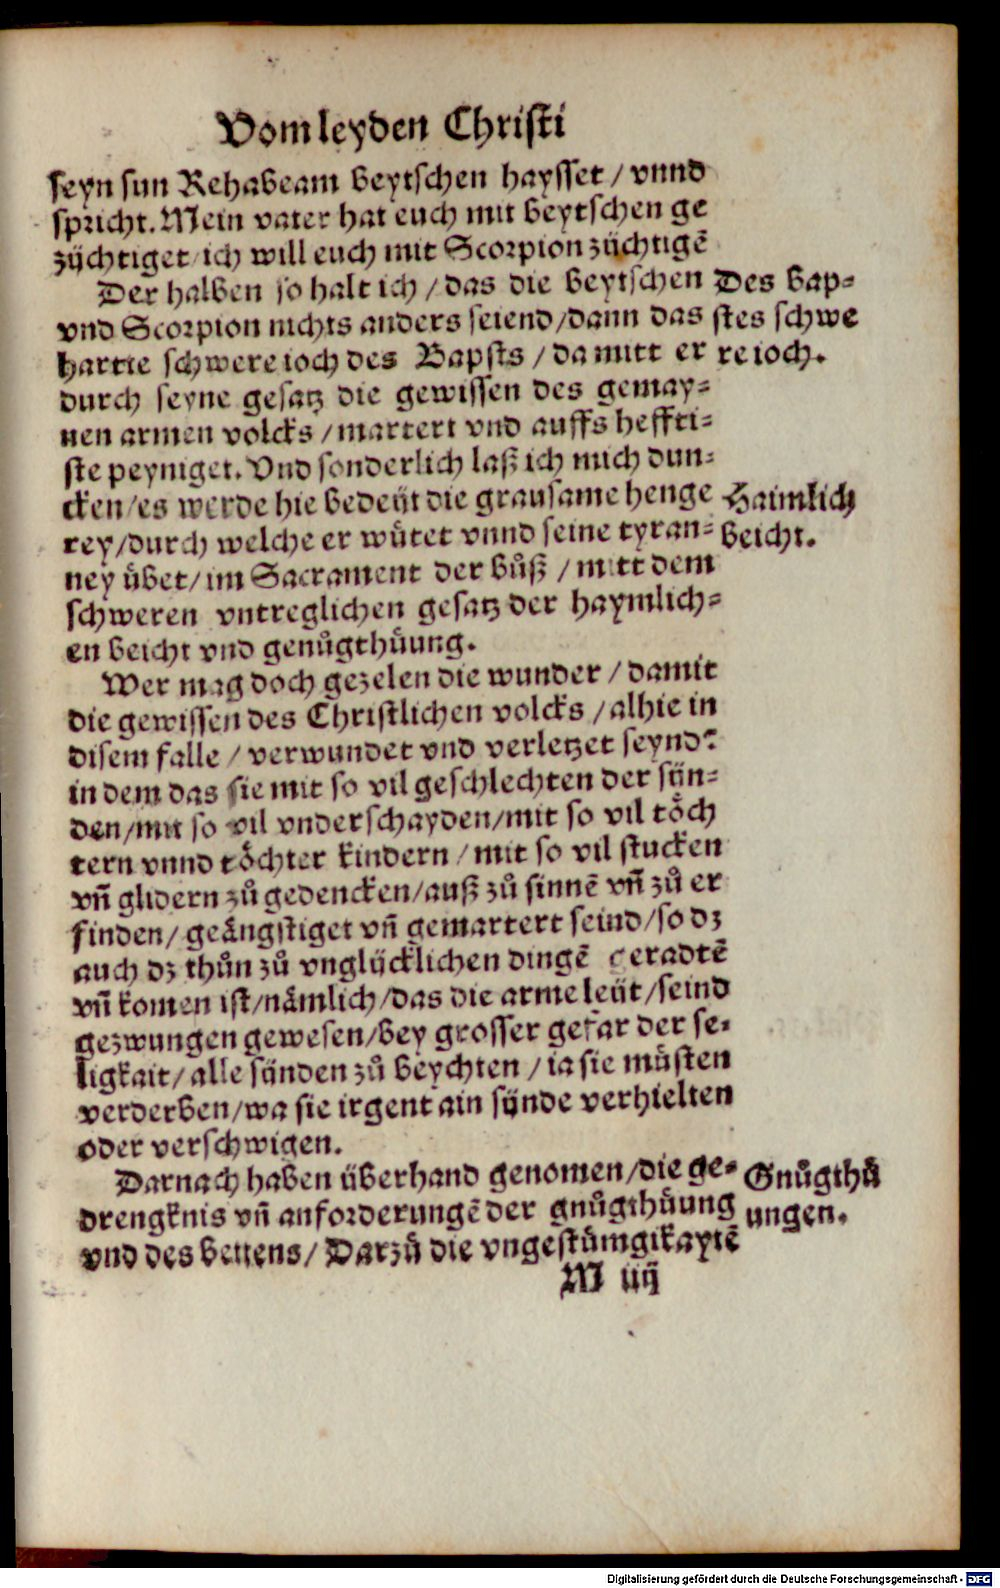 Vom leyden Christi
seyn sun Rehabeam beytschen haysset / vnnd
spricht. Mein vater hat euch mit beytschen ge
züchtiget / ich will euch mit Scorpion züchtigē
Der halben so halt ich / das die beytschen
vnd Scorpion nichts anders seiend / dann das
hartte schwere ioch des Bapsts / da mitt er
durch seyne gesatz die gewissen des gemay=
nen armen volcks / martert vnd auffs heffti=
ste peyniget. Vnd sonderlich laß ich mich dun=
cken / es werde hie bedeüt die grausame henge
rey / durch welche er wůtet vnnd seine tyran=
ney übet / im Sacrament der bůß / mitt dem
schweren vntreglichen gesatz der haymlich=
en beicht vnd genůgthůung.
Des bap=
stes schwe
re ioch.
Haimlich
beicht.
Wer mag doch gezelen die wunder / damit
die gewissen des Christlichen volcks / alhie in
disem falle / verwundet vnd verletzet seynd?
in dem das sie mit so vil geschlechten der sün=
den / mit so vil vnderschayden / mit so vil töch
tern vnnd töchter kindern / mit so vil stucken
vñ glidern zů gedencken / auß zů sinnē vñ zů er
finden / geängstiget vñ gemartert seind / so dz
auch dz thůn zů vnglücklichen dingē geradtē
vñ komen ist / nämlich / das die arme leüt / seind
gezwungen gewesen / bey grosser gefar der se=
ligkait / alle sünden zů beychten / ia sie můsten
verderben / wa sie irgent ain sünde verhielten
oder verschwigen.
Darnach haben überhand genomen / die ge=
drengknis vñ anforderungē der gnůgthůung
vnd des bettens / Darzů die vngestůmgikaytē
Gnůgthů
ungen.
M iiij
Digitalisierung gefördert durch die Deutsche Forschungsgemeinschaft - DFG